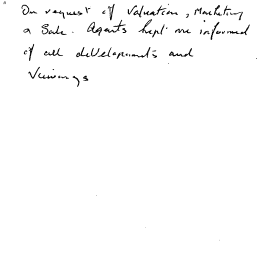 On request of Valuation, Marketing
& Sale. Agents kept me informed
of all developments and
Viewings